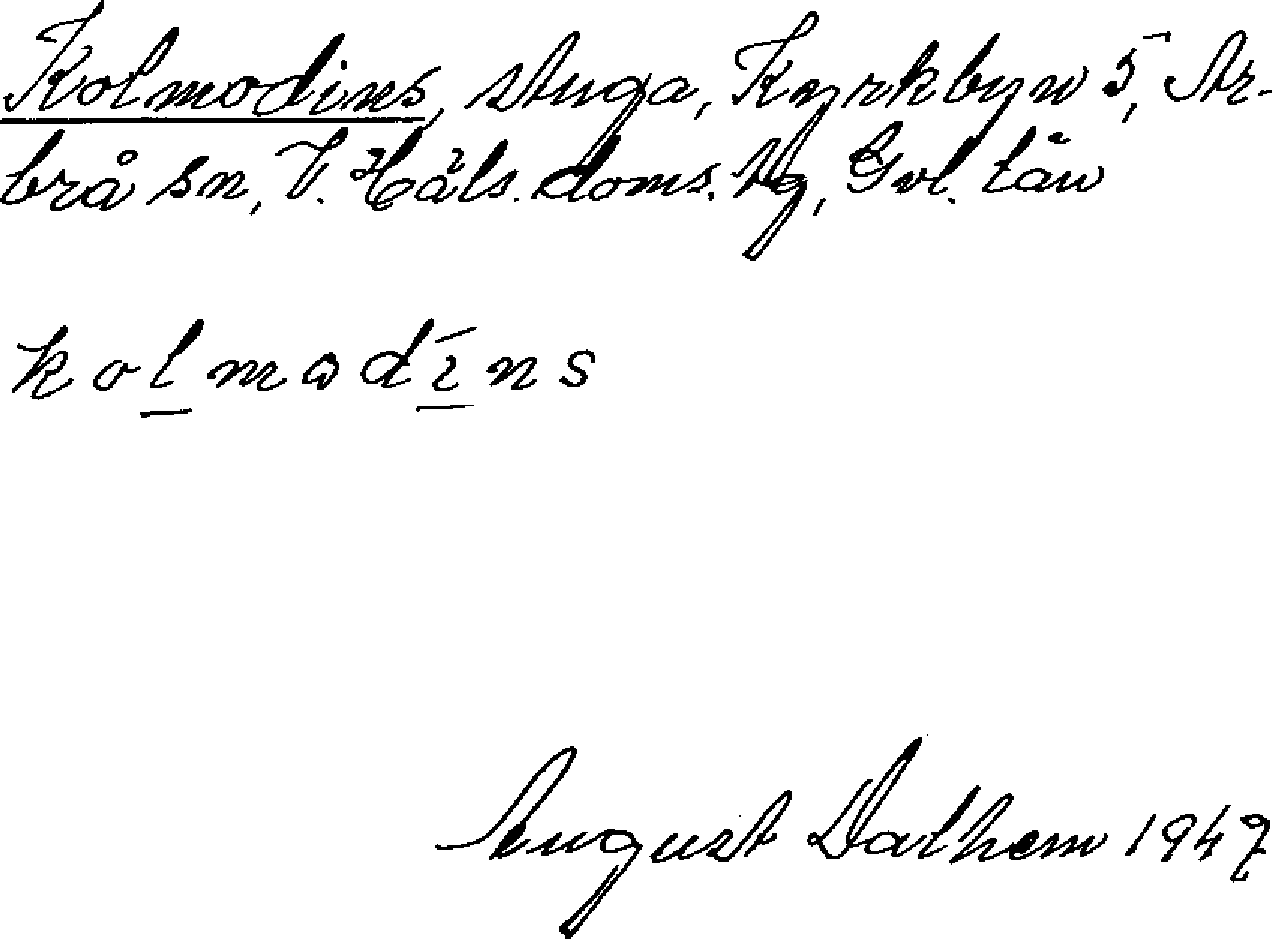 Kolmodins, stuga, Kyrkbyn 5, Ar-
brå sn, V. Häls. doms. tg, Gvl. län
kolmodins
August Dalhem 1947